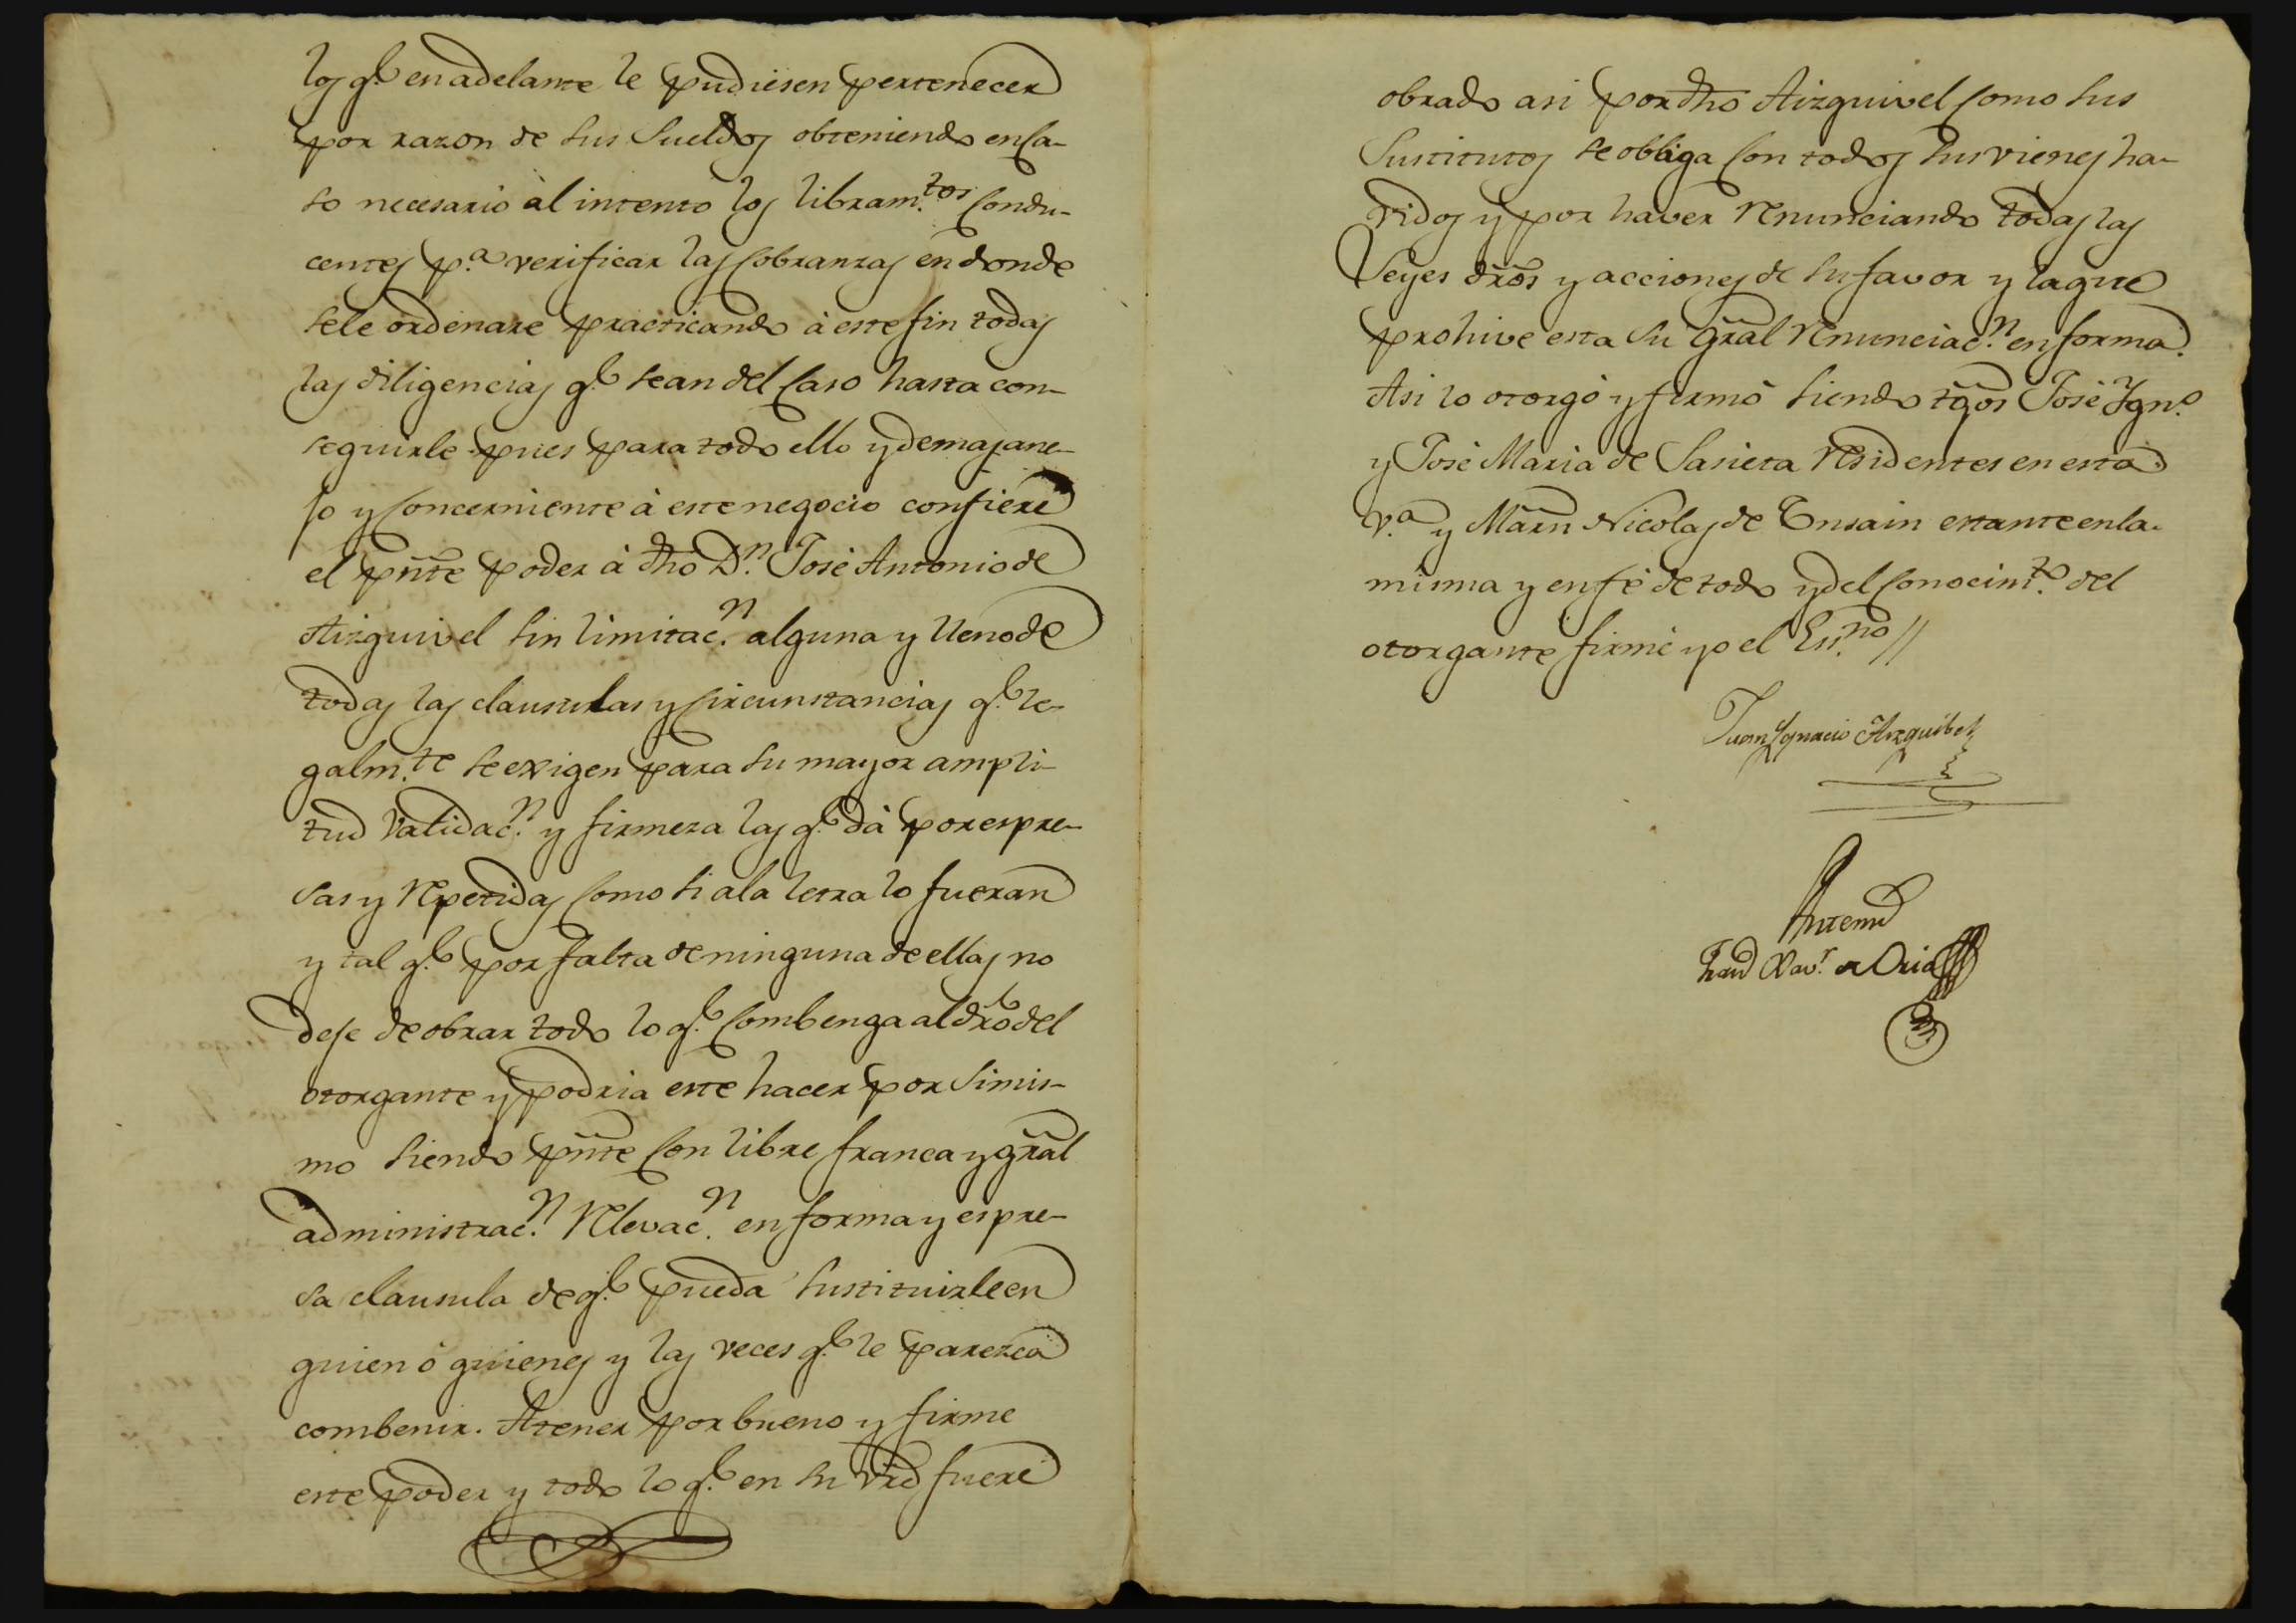 los q.e en adelante le pudiesen pertenecer
por razon de sus sueldos obteniendo en ca-
so necesario al intento los libram.tos condu-
centes p.a verificar las cobranzas en donde
se le ordenare practicando à este fin todas
las diligencias q.e sean del caso hasta con-
seguirle pues para todo ello y demas ane-
jo y concerniente à este negocio confiere
el pñte poder à dho D.n José Antonio de
Aizquivel sin limitac.n alguna y lleno de
todas las clausulas y circunstancias q.e le-
galm.te se exigen para su mayor ampli-
tud validac.n y firmeza las q.e dà por espre-
sas y repetidas como si a la letra lo fueran
y tal q.e por falta de ninguna de ellas no
deje de obrar todo lo q.e combenga al dró del
otorgante y podria este hacer por si mis-
mo siendo pñte con libre franca y gral
administrac.n relevac.n en forma y espre-
sa clausula de q.e pueda sustituirle en
quien ó quienes y las veces q.e le parezca
combenir. A tener por bueno y firme
este poder y todo lo q.e en su vrd fuere
obrado asi por dho Aizquivel como sus
sustitutos se obliga con todos sus vienes ha-
vidos y por haver renunciando todas las
Leyes drõs y acciones de su favor y la que
prohive esta su gral renunciac.n en forma.
Asi lo otorgó y firmó siendo tgõs José Ygn.o
y José Maria de Sarieta residentes en esta
v.a y Marñ Nicolas de Ynsain estante en la
misma y en fé de todo y del conocim.to del
otorgante firmé yo el Es.no //
Juan Ygnacio Aizquibel
Antemi
Xav.r de Oria